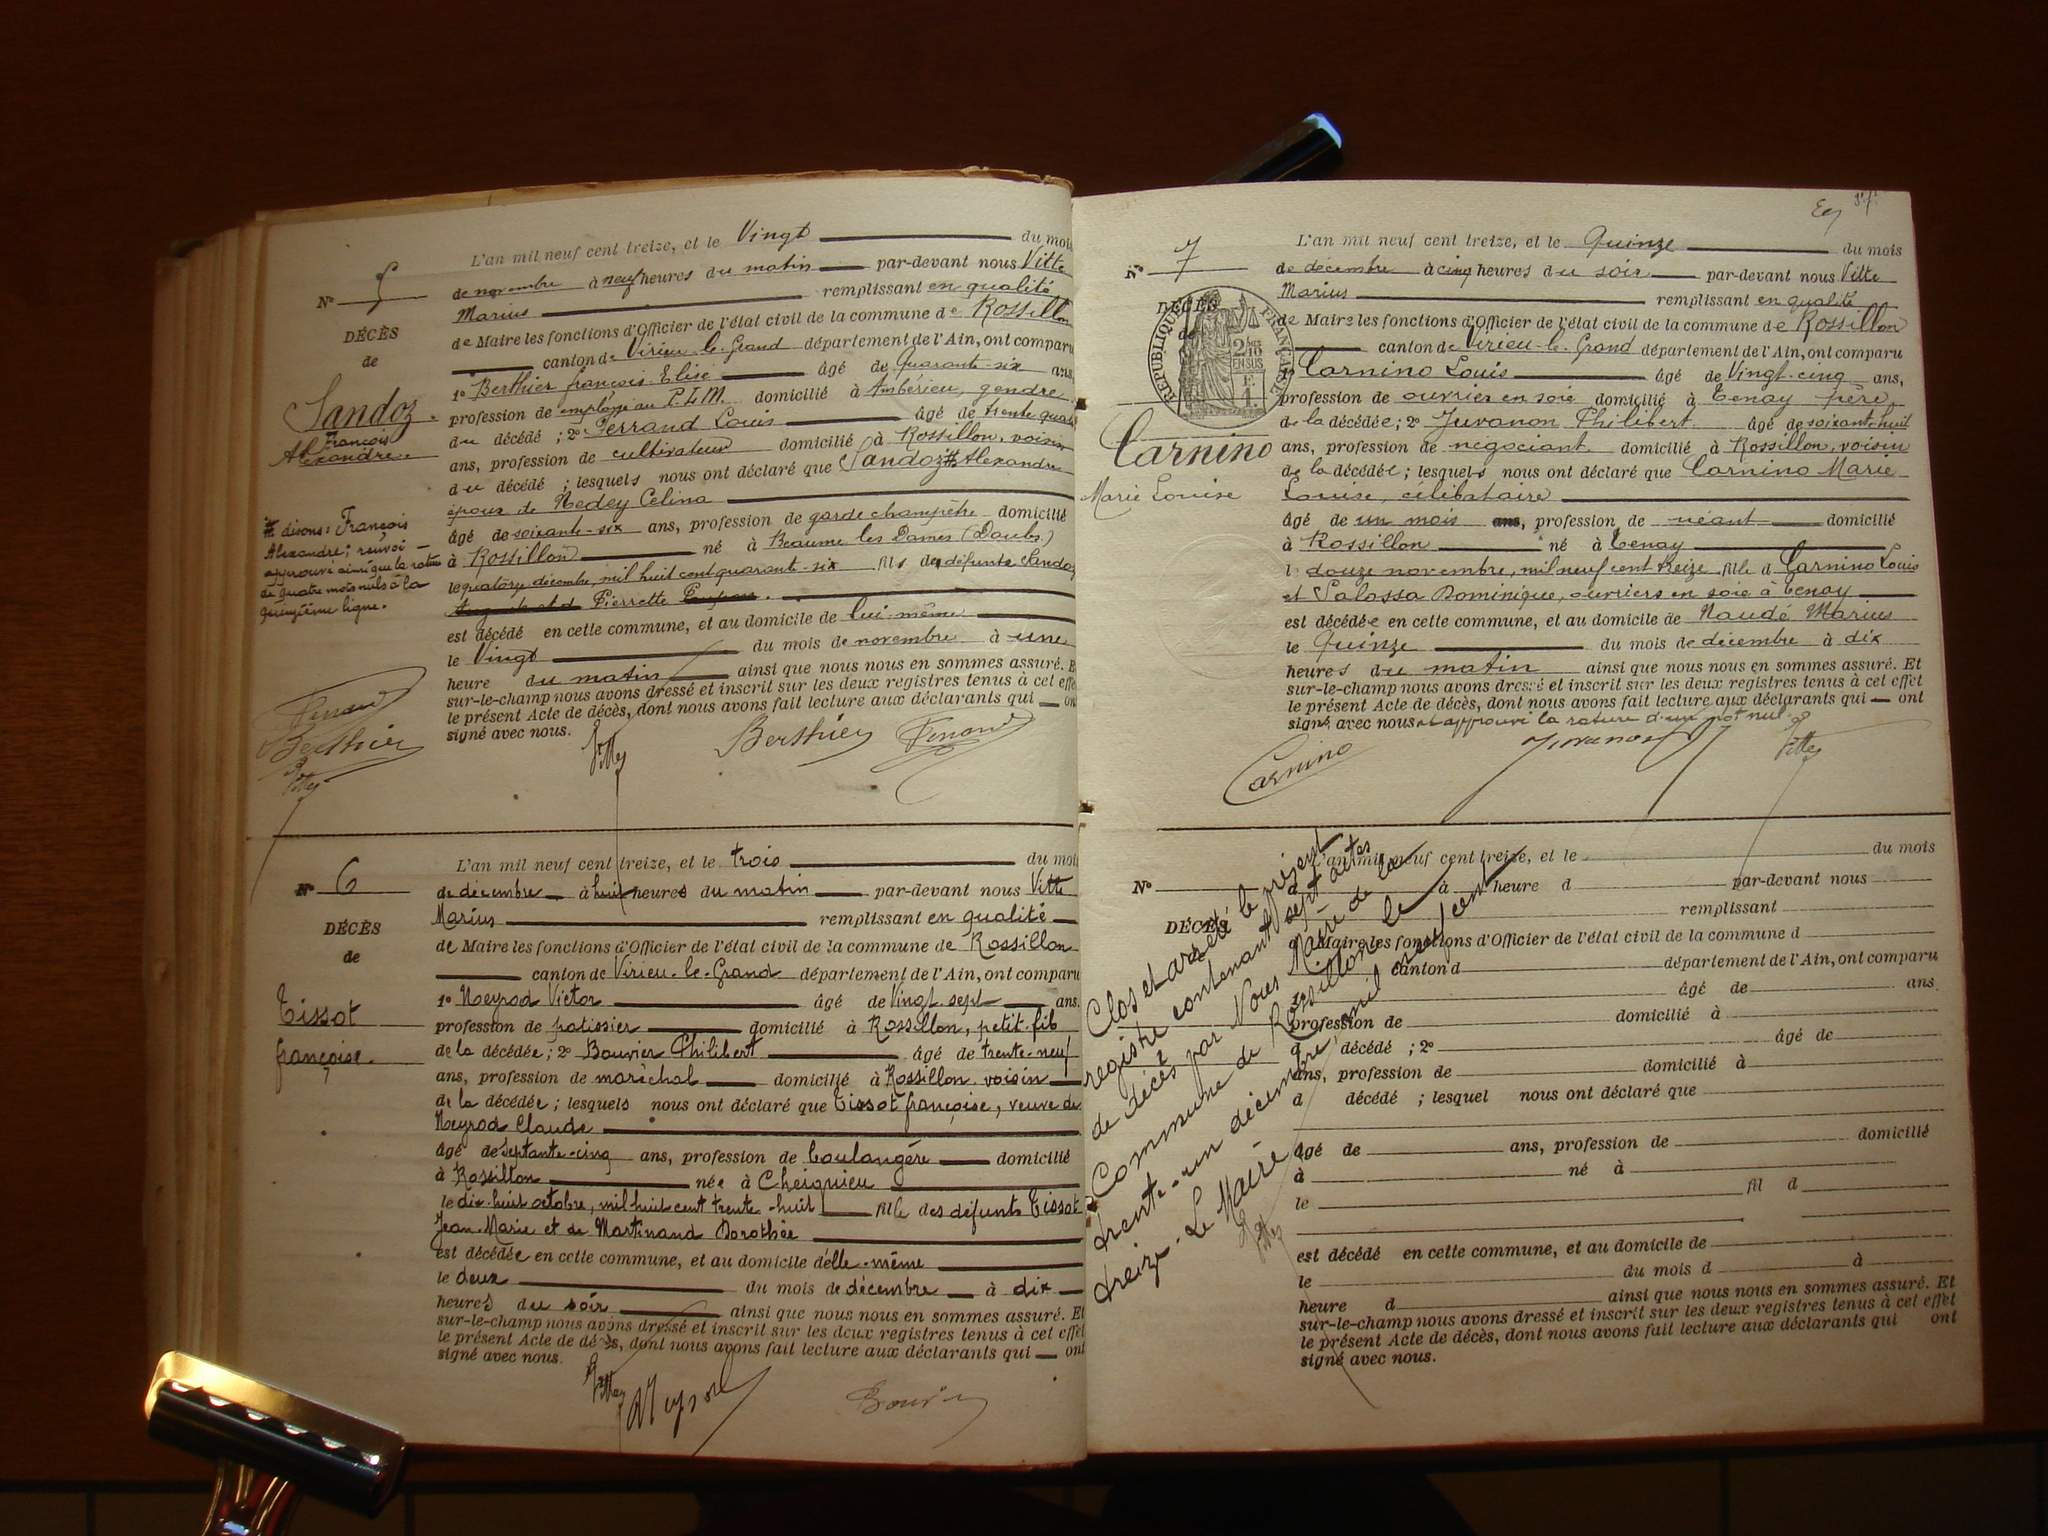 L'an mil neuf cent treize, et le Vingt du mois
N° 5
de novembre à neuf heures du matin par-devant nous Vitte
Marius remplissant en qualité
DÉCÈS
de Maire les fonctions d'Officier de l'état civil de la commune de Rossillon
de
canton de Virieu-le-Grand département de l'Ain, ont comparu
1° Berthier François-Elisé âgé de Quarante-six ans,
Sandoz
profession de employé au P.L.M. domicilié à Ambérieu, gendre
François
Alexandre
du décédé ; 2° Ferrand Louis âgé de trente quatre
ans, profession de cultivateur domicilié à Rossillon, voisin
du décédé ; lesquels nous ont déclaré que Sandoz # Alexandre
époux de Nedey Celina
âgé de soixante-six ans, profession de garde champêtre domicilié
à Rossillon né à Beaume les Dames (Doubs)
le quatorze décembre, mil huit cent quarante-six fils de défunte Sandoz
Pierrette
# disons: François
Alexandre; renvoi
approuvé ainsi que la rature
de quatre mots nuls à la
quinzième ligne.
est décédé en cette commune, et au domicile de lui-même
le Vingt du mois de novembre à une
heure du matin ainsi que nous nous en sommes assuré. Et
sur-le-champ nous avons dressé et inscrit sur les deux registres tenus à cet effet
le présent Acte de décès, dont nous avons fait lecture aux déclarants qui ont
signé avec nous.
Ferrand
Berthier
Vitte
Vitte Berthier Ferrand
L'an mil neuf cent treize, et le trois du mois
N° 6
de décembre à huit heures du matin par-devant nous Vitte
Marius remplissant en qualité
DÉCÈS
de Maire les fonctions d'Officier de l'état civil de la commune de Rossillon
de
canton de Virieu-le-Grand département de l'Ain, ont comparu
1° Neyrod Victor âgé de Vingt-sept ans.
Tissot
profession de patissier domicilié à Rossillon, petit-fils
françoise.
de la décédée ; 2° Bouvier Philibert âgé de trente-neuf
ans, profession de maréchal domicilié à Rossillon, voisin
de la décédée ; lesquels nous ont déclaré que Tissot françoise, veuve de
Neyrod Claude
âgé de septante-cinq ans, profession de boulangère domicilié
à Rossillon née à Cheignieu
le dix-huit octobre, mil huit cent trente-huit fille des défunts Tissot
Jean-Marie et de Martinand Dorothée
est décédée en cette commune, et au domicile d'elle-même
le deux du mois de décembre à dix
heures du soir ainsi que nous nous en sommes assuré. Et
sur-le-champ nous avons dressé et inscrit sur les deux registres tenus à cet effet
le présent Acte de décès, dont nous avons fait lecture aux déclarants qui ont
signé avec nous.
Vitte Neyrod Bouvier
L'an mil neuf cent treize, et le Quinze du mois
N° 7
de décembre à cinq heures du soir par-devant nous Vitte
Marius remplissant en qualité
DÉCÈS
de
RÉPUBLIQUE FRANÇAISE
2/10 EN SUS
de Maire les fonctions d'Officier de l'état civil de la commune de Rossillon
canton de Virieu-le-Grand département de l'Ain, ont comparu
1° Carnino Louis âgé de Vingt-cinq ans,
profession de ouvrier en soie domicilié à Tenay père
de la décédée ; 2° Juvanon Philibert âgé de soixante-huit
Carnino
ans, profession de négociant domicilié à Rossillon, voisin
de la décédée ; lesquels nous ont déclaré que Carnino Marie
Marie Louise
Louise, célibataire
âgé de un mois ans, profession de néant domicilié
à Rossillon né à Tenay
le douze novembre, mil neuf cent treize fille d Carnino Louis
et Salassa Dominique, ouvriers en soie à Tenay
est décédée en cette commune, et au domicile de Naudé Marius
le Quinze du mois de décembre à dix
heures du matin ainsi que nous nous en sommes assuré. Et
sur-le-champ nous avons dressé et inscrit sur les deux registres tenus à cet effet
le présent Acte de décès, dont nous avons fait lecture aux déclarants qui ont
signé avec nous et approuvé la rature d'un mot nul.
Carnino Juvanon Vitte
L'an mil neuf cent treize, et le du mois
N°
d à heure d par-devant nous
remplissant
DÉCÈS
d Maire les fonctions d'Officier de l'état civil de la commune d
canton d département de l'Ain, ont comparu
1° âgé de ans.
profession de domicilié à
d décédé ; 2° âgé de
ans, profession de domicilié à
d décédé ; lesquel nous ont déclaré que
âgé de ans, profession de domicilié
à né à
le fil d
est décédé en cette commune, et au domicile de
le du mois d à
heure d ainsi que nous nous en sommes assuré. Et
sur-le-champ nous avons dressé et inscrit sur les deux registres tenus à cet effet
le présent Acte de décès, dont nous avons fait lecture aux déclarants qui ont
signé avec nous.
Clos et arrêté le présent
registre contenant sept actes
de décès par Nous Maire de la
Commune de Rossillon le
trente-un décembre, mil neuf cent
treize. Le Maire
Vitte